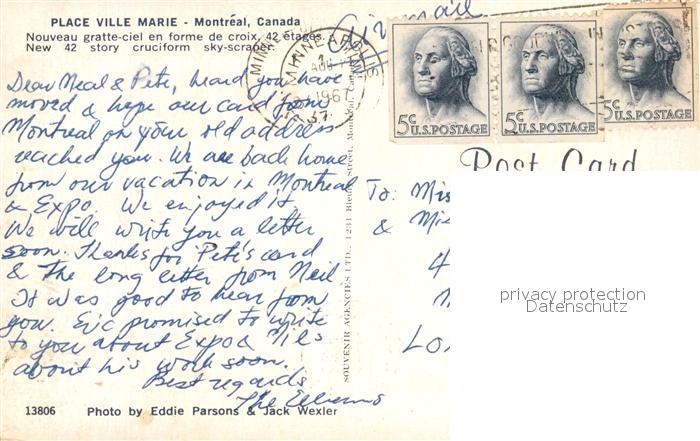 PLACE VILLE MARIE - Montréal, Canada
Nouveau gratte-ciel en forme de croix, 42 étages.
New 42 story cruciform sky-scraper.
Air mail
MINNEAPOLIS
MINN
AUG
1967
37
5¢ U.S.POSTAGE
5¢ U.S.POSTAGE
5¢ U.S.POSTAGE
Post Card
Dear Neal & Pete, heard you have
moved & hope our card from
Montreal on your old address
reached you. We are back home
from our vacation in Montreal
& Expo. We enjoyed it.
We will write you a letter
soon. Thanks for Pete's card
& the long letter from Neil
It was good to hear from
you. Eric promised to write
to you about Expo & Nils
about his work soon.
Best regards
The
To: Mis
& Mis
4
Lo
SOUVENIR AGENCIES LTD., 1231 Bleury Street, Montréal, Canada
privacy protection
Datenschutz
13806 Photo by Eddie Parsons & Jack Wexler